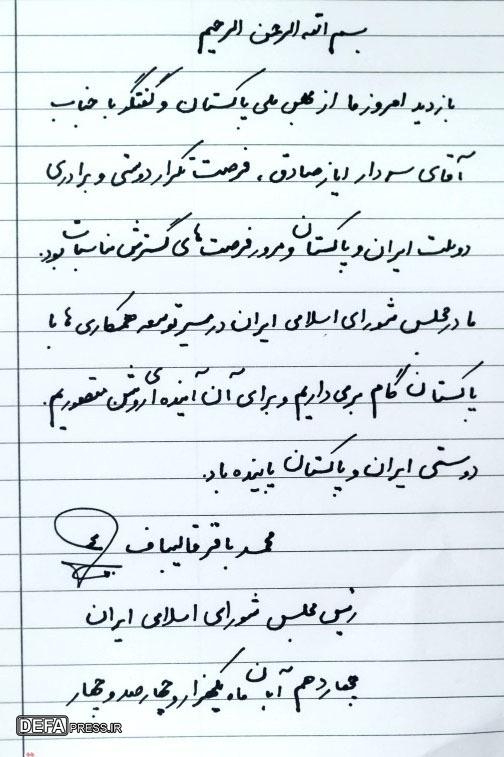 بسم الله الرحمن الرحیم
بازدید امروز ما از مجلس ملی پاکستان و گفتگو با جناب
آقای سردار ایاز صادق، فرصت تکرار دوستی و برادری
دو ملت ایران و پاکستان و مرور فرصت های گسترش مناسبات بود.
ما در مجلس شورای اسلامی ایران در مسیر توسعه همکاری ها با
پاکستان گام برمی داریم و برای آن آینده ای روشن متصوریم.
دوستی ایران و پاکستان پاینده باد.
محمد باقر قالیباف
رئیس مجلس شورای اسلامی ایران
چهاردهم آبان ماه یکهزار و چهارصد و چهار
DEFAPRESS.IR